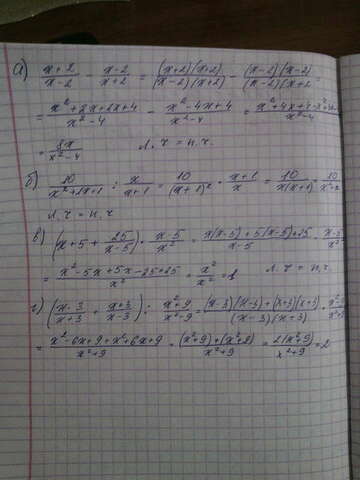 а) (x+2)/(x-2) - (x-2)/(x+2) = ((x+2)(x+2))/((x-2)(x+2)) - ((x-2)(x-2))/((x-2)(x+2)) =
= (x²+2x+2x+4)/(x²-4) - (x²-4x+4)/(x²-4) =
= 8x/(x²-4) л.ч = п.ч.
б) 10/(x²+2x+1) : x/(x+1) = 10/(x+1)² · (x+1)/x = 10/(x(x+1)) =
л.ч = п.ч
в) (x+5 + 25/(x-5)) · (x-5)/x² = (x(x-5)+5(x-5)+25)/(x-5) ·
= (x²-5x+5x-25+25)/x² = x²/x² = 1 л.ч = п.ч.
г) ((x-3)/(x+3) + (x+3)/(x-3)) : (x²+9)/(x²-9) = ((x-3)(x-3)+(x+3)(x+3))/((x-3)(x+3)) ·
= (x²-6x+9+x²+6x+9)/(x²+9) = ((x²+9)+(x²+9))/(x²+9) = 2(x²+9)/(x²+9) = 2